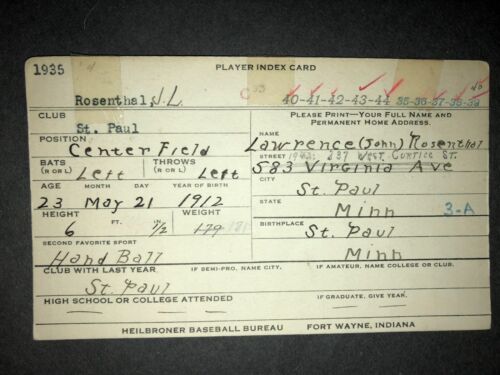 1935 PLAYER INDEX CARD
Rosenthal, J. L. C 33 40-41-42-43-44 35-36-37-38-39 46
CLUB PLEASE PRINT—YOUR FULL NAME AND
St. Paul PERMANENT HOME ADDRESS.
POSITION NAME
Center Field Lawrence (John) Rosenthal
BATS THROWS STREET 1942: 237 WEST CURTICE ST.
(R OR L) Left (R OR L) Left 583 Virginia Ave
AGE MONTH DAY YEAR OF BIRTH CITY
23 May 21 1912 St. Paul
HEIGHT WEIGHT STATE
6 FT. 1/2 179 181 Minn 3-A
SECOND FAVORITE SPORT BIRTHPLACE
Hand Ball St. Paul
Minn
CLUB WITH LAST YEAR IF SEMI-PRO, NAME CITY. IF AMATEUR, NAME COLLEGE OR CLUB.
St. Paul
HIGH SCHOOL OR COLLEGE ATTENDED IF GRADUATE, GIVE YEAR.
HEILBRONER BASEBALL BUREAU FORT WAYNE, INDIANA